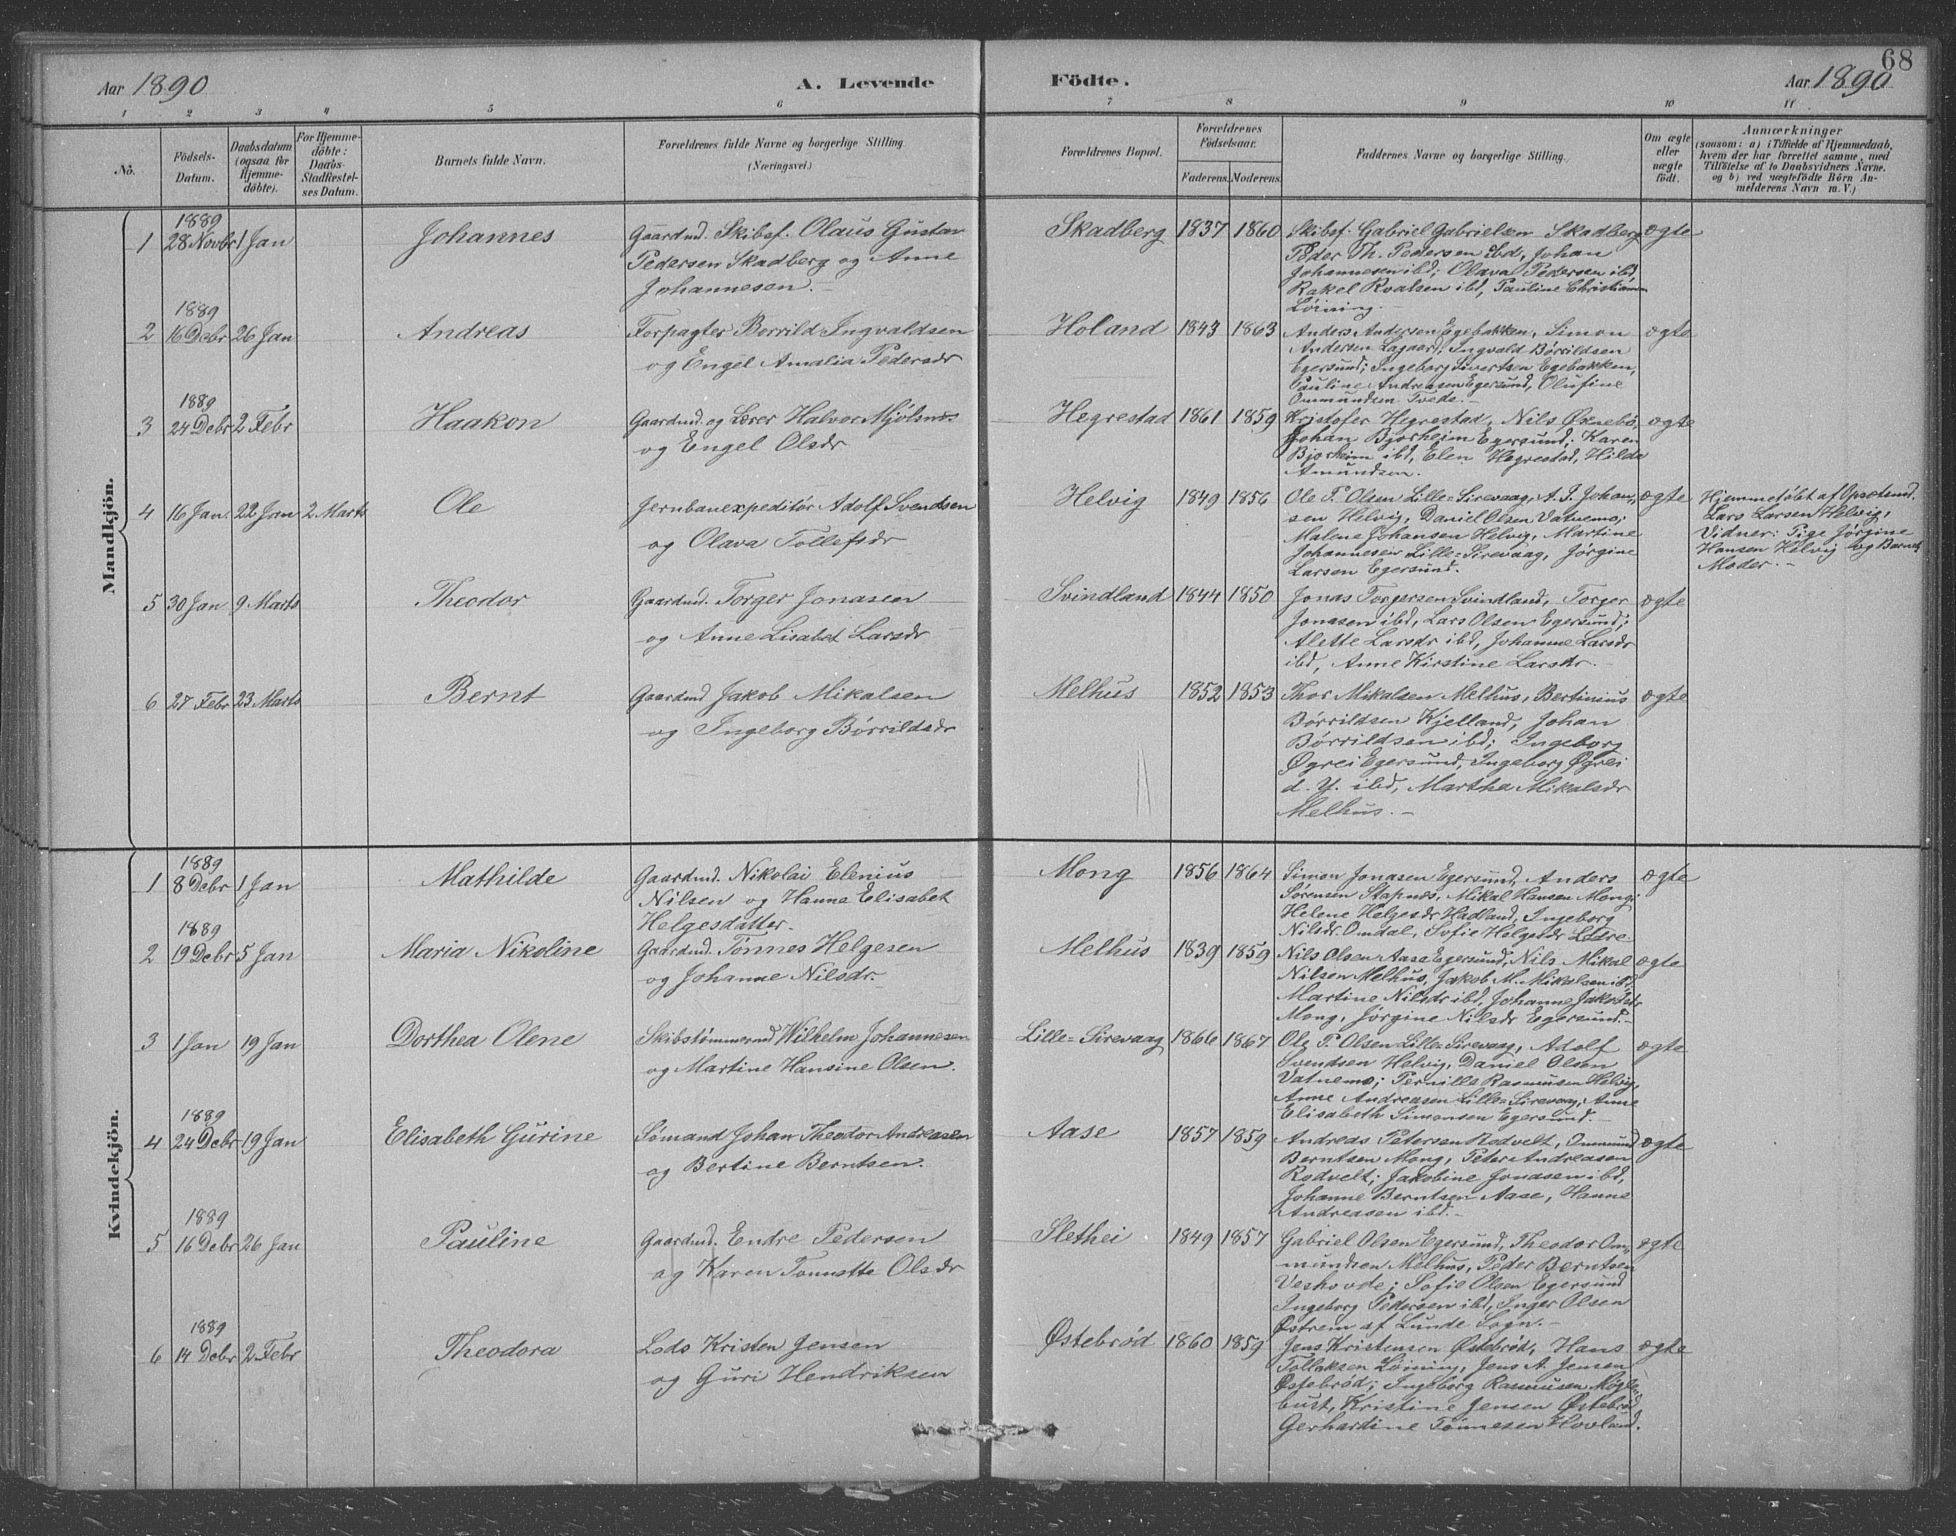 68
Aar 1890 A. Levende Födte. Aar 1890
1 2 3 4 5 6 7 8 9 10 11
No. Födsels-Datum. Daabsdatum (ogsaa for Hjemme-döbte). For Hjemme-döbte: Daabs-Stadfæstelses Datum. Barnets fulde Navn. Forældrenes fulde Navne og borgerlige Stilling. (Næringsvei.) Forældrenes Bopæl. Forældrenes Födselsaar. Faderens. Moderens. Faddernes Navne og borgerlige Stilling. Om ægte eller uægte födt. Anmærkninger (saasom: a) i Tilfælde af Hjemmedaab, hvem der har forrettet samme, med Tilföielse af to Daabsvidners Navne. og b) ved uægtefödte Börn Anmelderens Navn m. V.)
Mandkjön.
1889
1 28 Novbr 1 Jan Johannes Gaardmd. Skibsf. Olaus Gustav Skadberg 1837 1860 Skibsf. Gabriel Gabrielsen Skadberg ægte
Pedersen Skadberg og Anne Peder Th. Pedersen ibd, Johan
Johannesen. Johannesen ibd; Olava Pedersen ibd,
Rakel Roalsen ibd, Pauline Christiansen
Løining.
1889
2 16 Debr 26 Jan Andreas Forpagter Borrild Ingvaldsen Holand 1843 1863 Anders Andersen Egebakken, Simon ægte
og Engel Amalia Pedersdr Andersen Lagaard, Ingvald Børrildsen
Egersund; Ingeborg Sivertsen Egebakken,
Pauline Andreasen Egersund, Olufine
Ommundsen Tvede.
1889
3 24 Debr 2 Febr Haakon Gaardmd. og Lærer Halvor Mjølsnes Hegrestad 1861 1859 Kristofer Hegrestad, Nils Øknebø, ægte
og Engel Olsdr Johan Bjorheim Egersund; Karen
Bjorheim ibd, Elen Hegrestad, Hilda
Amundsen.
4 16 Jan. 22 Jan 2 Marts Ole Jernbanexpeditør Adolf Svendsen Helvig 1849 1856 Ole P. Olsen Lille-Sirevaag, A. J. Johan- ægte Hjemmedøbt af Opsætmd.
og Olava Tollefsdr sen Helvig, Daniel Olsen Vatnemo; Lars Larsen Helvig,
Malene Johansen Helvig, Martine Vidner: Pige Jørgine
Johannesen Lille-Sirevaag, Jørgine Hansen Helvig og Barnets
Larsen Egersund. Moder.
5 30 Jan 9 Marts Theodor Gaardmd. Torger Jonasen Svindland 1844 1850 Jonas Torgersen Svindland, Torger ægte
og Anne Lisabet Larsdr Jonasen ibd, Lars Olsen Egersund;
Alette Larsdr ibd, Johanne Larsdr
ibd, Anne Kirstine Larsdr.
6 27 Febr 23 Marts Bernt Gaardmd Jakob Mikalsen Melhus 1852 1853 Thor Mikalsen Melhus, Bertinius ægte
og Ingeborg Børrildsdr Børrildsen Kjelland, Johan
Børrildsen ibd; Ingeborg
Øgrei Egersund, Ingeborg Øgrei
d. Y. ibd, Martha Mikalsdr
Melhus.
Kvindekjön.
1889
1 8 Debr 1 Jan Mathilde Gaardmd. Nikolai Elenius Mong 1856 1864 Simon Jonasen Egersund, Anders ægte
Nilsen og Hanne Elisabet Sørensen Stapnes, Mikal Hansen Mong;
Helgesdatter. Helene Helgesdr Hadland, Ingeborg
Nilsdr. Omdal, Sofie Helgesdr Lædre.
1889
2 19 Debr 5 Jan Maria Nikoline Gaardmd. Tønnes Helgesen Melhus 1839 1859 Nils Olsen Aase Egersund, Nils Mikal ægte
og Johanne Nilsdr. Nilsen Melhus, Jakob M. Mikalsen ibd,
Martine Nilsdr ibd, Johanne Jakobsdr
Mong, Jørgine Nilsdr Egersund.
3 1 Jan 19 Jan Dorthea Olene Skibstømmermd Wilhelm Johannesen Lille-Sirevaag 1866 1867 Ole P. Olsen Lille-Sirevaag, Adolf ægte
og Martine Hansine Olsen. Svendsen Helvig, Daniel Olsen
Vatnemo; Pernille Rasmusen Helvig,
Anne Andreasen Lille-Sirevaag, Anne
Elisabeth Simonsen Egersund.
1889
4 24 Debr 19 Jan Elisabeth Gurine Sømand Johan Theodor Andreasen Aase 1857 1859 Andreas Petersen Rodvelt, Ommund ægte
og Bertine Berntsen. Berntsen Mong, Peter Andreasen
Rodvelt; Jakobine Jonasen ibd,
Johanne Berntsen Aase, Hanne
Andreasen ibd.
1889
5 16 Debr 26 Jan Pauline Gaardmd. Endre Pedersen Slethei 1849 1857 Gabriel Olsen Egersund, Theodor Om- ægte
og Karen Tonnette Olsdr mundsen Melhus, Peder Berntsen
Veshovde; Sofie Olsen Egersund
Ingeborg Pedersen ibd, Inger Olsen
Østrem af Lunde Sogn.
1889
6 14 Debr 2 Febr Theodora Lods Kristen Jensen Østebrød 1860 1859 Jens Kristensen Østebrød, Hans ægte
og Guri Hendriksen Tollaksen Løining, Jens A. Jensen
Østebrød; Ingeborg Rasmusen Møgle-
bust, Kristine Jensen Østebrød
Gerhartine Tønnesen Hovland.